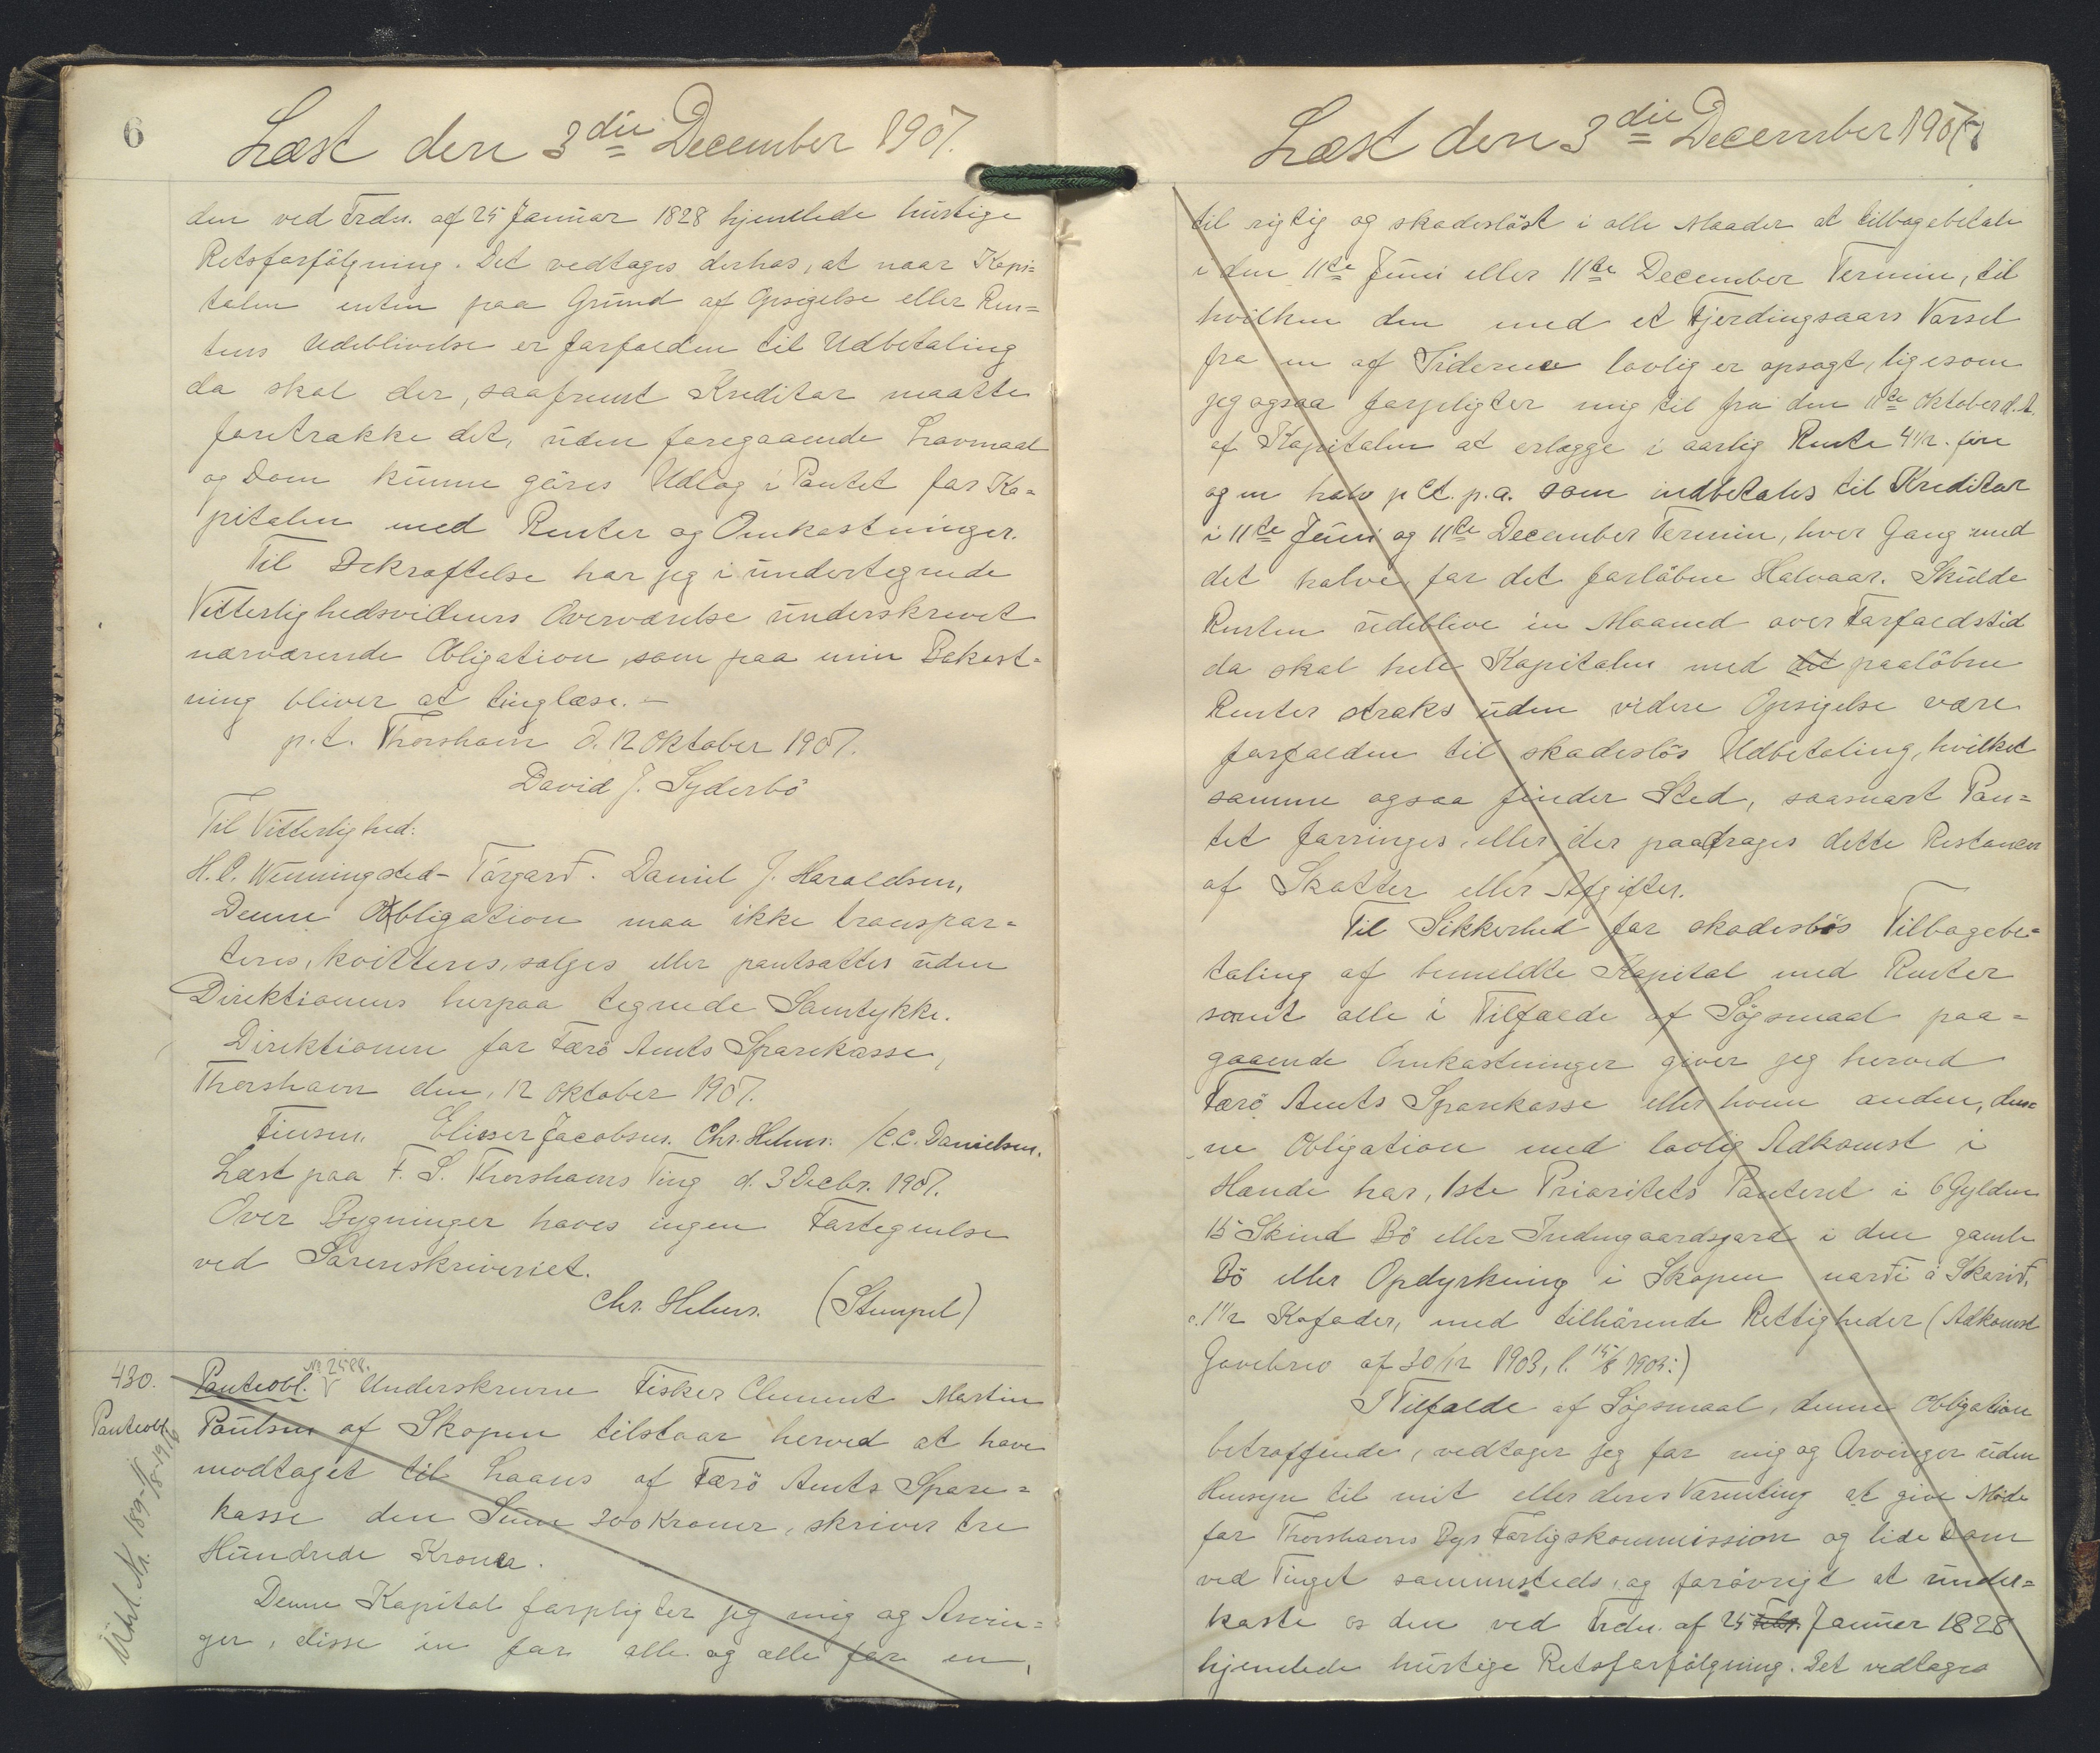 6
Læst den 3die December 1907.
den ved Frdn. af 25 Januar 1828 hjemlede hurtige
Retsforfölgning. Det vedtages derhos, at naar Kapi=
talen enten paa Grund af Opsigelse eller Ren=
tens Udeblivelse er forfalden til Udbetaling
da skal der, saafremt Kreditor maatte
foretrække det, uden foregaaende Lovmaal
og Dom kunne göres Udlæg i Pantet for Ka=
pitalen med Renter og Omkostninger.
Til Bekræftelse har jeg i undertegnede
Vitterlighedsvidners Overværelse underskrevet
nærværende Obligation, som paa min Bekost=
ning bliver at tinglæse. –
p.t. Thorshavn d. 12 Oktober 1907.
David J. Syderbö
Til Vitterlighed:
H. C. Wenningsted-Tórgarð. Daniel J. Haraldsen,
Denne Obligation maa ikke transpor=
teres, kvitteres, sælges eller pantsættes uden
Direktionens herpaa tegnede Samtykke.
Direktionen for Færö Amts Sparekasse,
Thorshavn den, 12 Oktober 1907.
Finsen. Elieser Jacobsen. Chr. Helms. /C.C. Danielsen.
Læst paa F. S. Thorshavns Ting d. 3 Decbr. 1907.
Over Bygninger haves ingen Fortegnelse
ved Sorenskriveriet.
Chr. Helms. (Stempel)
430.
Panteobl.
Udsl. Nr. 189-11/8-1916
Panteobl. No 2588. Underskrevne Fisker Clement Martin
Poulsen af Skopen tilstaar herved at have
modtaget til Laans af Færö Amts Spare=
kasse den Sum 300 Kroner, skriver tre
Hundrede Kroner.
Denne Kapital forpligter jeg mig og Arvin=
ger, disse en for alle og alle for en,
Læst den 3die December 1907
til rigtig og skadesløst i alle Maader at tilbagebetale
i den 11te Juni eller 11te December Termin, til
hvilken den med et Fjerdingaars Varsel
fra en af Siderne lovlig er opsagt, ligesom
jeg ogsaa forpligter mig til fra den 11te Oktober d.A.
af Kapitalen at erlægge i aarlig Rente 4½. fire
og en halv pCt. p.a. som indbetales til Kreditor
i 11te Juni og 11te December Termin, hver Gang med
det halve for det forløbne Halvaar. Skulde
Renten udeblive en Maaned over Forfaldstid
da skal hele Kapitalen med det paalöbne
Renter straks uden videre Opsigelse være
forfalden til skadeslös Udbetaling, hvilket
samme ogsaa finder Sted, saasnart Pan=
tet forringes, eller der paadrages dette Restancer
af Skatter eller Afgifter.
Til Sikkerhed for skadeslös Tilbagebe=
taling af bemeldte Kapital med Renter
samt alle i Tilfælde af Sögsmaal paa=
gaaende Omkostninger giver jeg herved
Færö Amts Sparekasse eller hvem anden, den=
ne Obligation med lovlig Adkomst i
Hænde har, 1ste Prioritets Panteret i 6 Gylden
15 Skind Bö eller Indmgaardsjord i den gamle
Bö eller Opdyrkning i Skopen narði á Skarð,
c. 1½ Kofoder, med tilhörende Rettigheder (Adkomst
Gavebrev af 30/12 1903, l. 15/8 1903:)
I Tilfælde af Sögsmaal, denne Obligation
betræffende, vedtager jeg for mig og Arvinger uden
Hensyn til mit eller deres Værneting at give Møde
for Thorshavns Bys Forligskommission og lide Dom
ved Tinget sammesteds, og forövrigt at under=
kaste os den ved Frdn. af 25 Febr. Januar 1828
hjemlede hurtige Retsforfölgning. Det vedtages